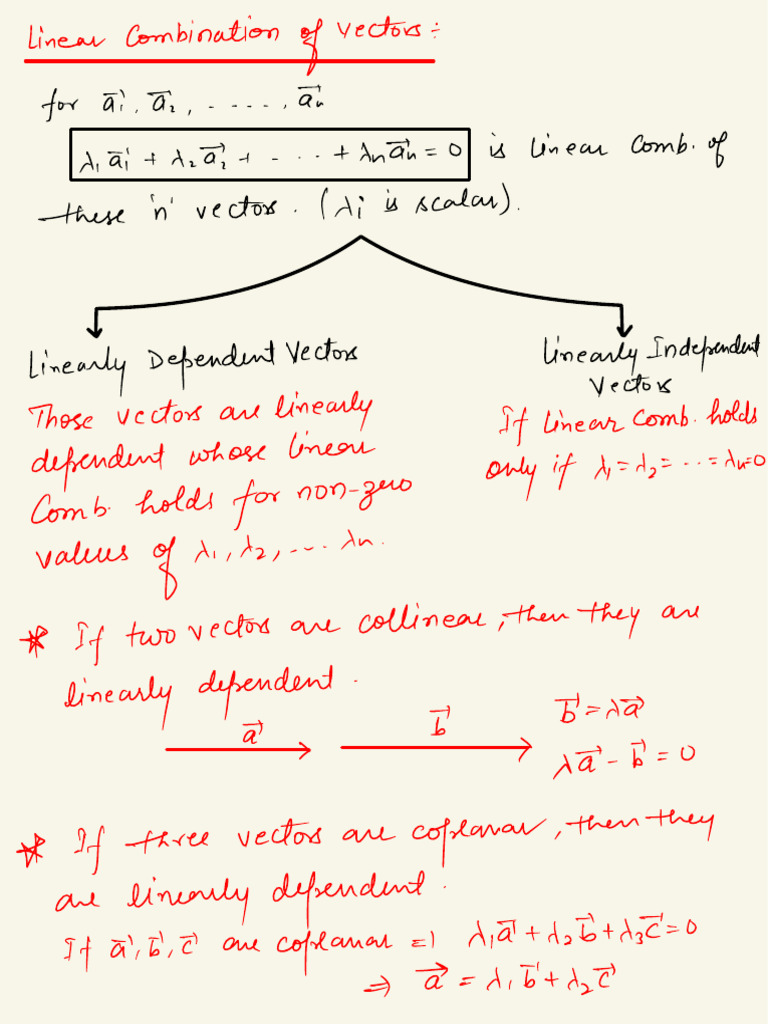 Linear Combination of vectors:-
for a⃗₁, a⃗₂, ....., a⃗ₙ
λ₁a⃗₁ + λ₂a⃗₂ + - ... + λₙa⃗ₙ = 0 is linear comb. of
these 'n' vectors. (λi is scalar).
Linearly Dependent Vectors
Those vectors are linearly
dependent whose linear
Comb. holds for non-zero
values of λ₁, λ₂, .... λₙ.
Linearly Independent
Vectors
If linear comb. holds
only if λ₁ = λ₂ = ... = λₙ = 0
* If two vectors are collinear, then they are
linearly dependent.
a⃗ b⃗ b⃗ = λa⃗
λa⃗ - b⃗ = 0
* If three vectors are coplanar, then they
are linearly dependent.
If a⃗, b⃗, c⃗ are coplanar ⇒ λ₁a⃗ + λ₂b⃗ + λ₃c⃗ = 0
⇒ a⃗ = λ₁b⃗ + λ₂c⃗